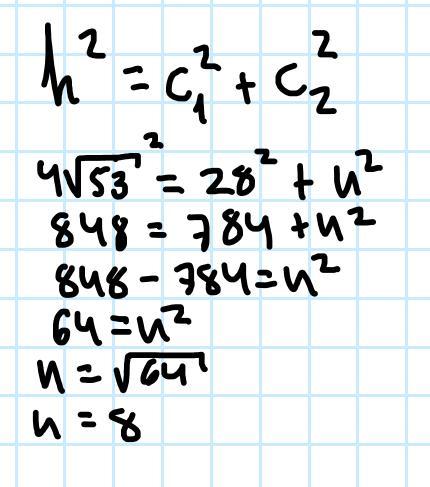 h² = C₁² + C₂²
4√53² = 28² + n²
848 = 784 + n²
848 - 784 = n²
64 = n²
n = √64
n = 8